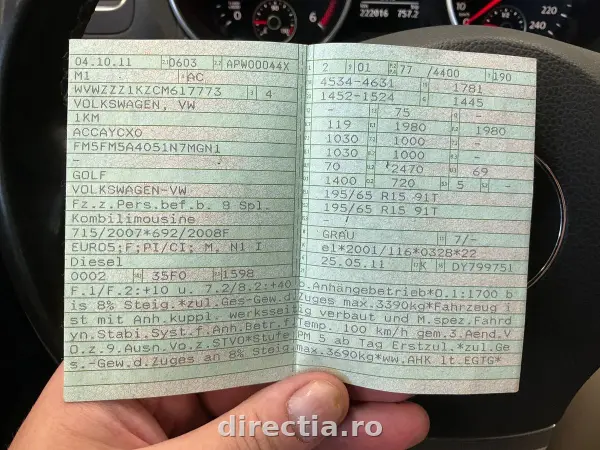 222016 757.2
220
240
04.10.11 0603 APW00044X
M1 AC
WVWZZZ1KZCM617773 4
VOLKSWAGEN, VW
1KM
ACCAYCX0
FM5FM5A4051N7MGN1
-
GOLF
VOLKSWAGEN-VW
Fz.z.Pers.bef.b. 8 Spl.
Kombilimousine
715/2007*692/2008F
EURO5;F;PI/CI; M, N1 I
Diesel
0002 35F0 1598
F.1/F.2:+10 u. 7.2/8.2:+40
is 8% Steig.*zul.Ges-Gew.d.
st mit Anh.kuppl. werkseitig
yn.Stabi.Syst.f.Anh.Betr.f.
O.z.9.Ausn.Vo.z.STVO*Stufe
s.-Gew.d.Zuges an 8% Steig.
2 01 77 /4400 190
4534-4631 1781
1452-1524 1445
- 75 -
119 1980 1980
1030 1000 -
1030 1000 -
70 2470 69
1400 720 5 -
195/65 R15 91T
195/65 R15 91T
- /
GRAU 7/-
e1*2001/116*0328*22
25.05.11 K DY799751
b.Anhängebetrieb*O.1:1700 b
Zuges max.3390kg*Fahrzeug i
verbaut und M.spez.Fahrd
Temp. 100 km/h gem.3.Aend.V
PM 5 ab Tag Erstzul.*zul.Ge
max.3690kg*ww.AHK lt.EGTG*
directia.ro